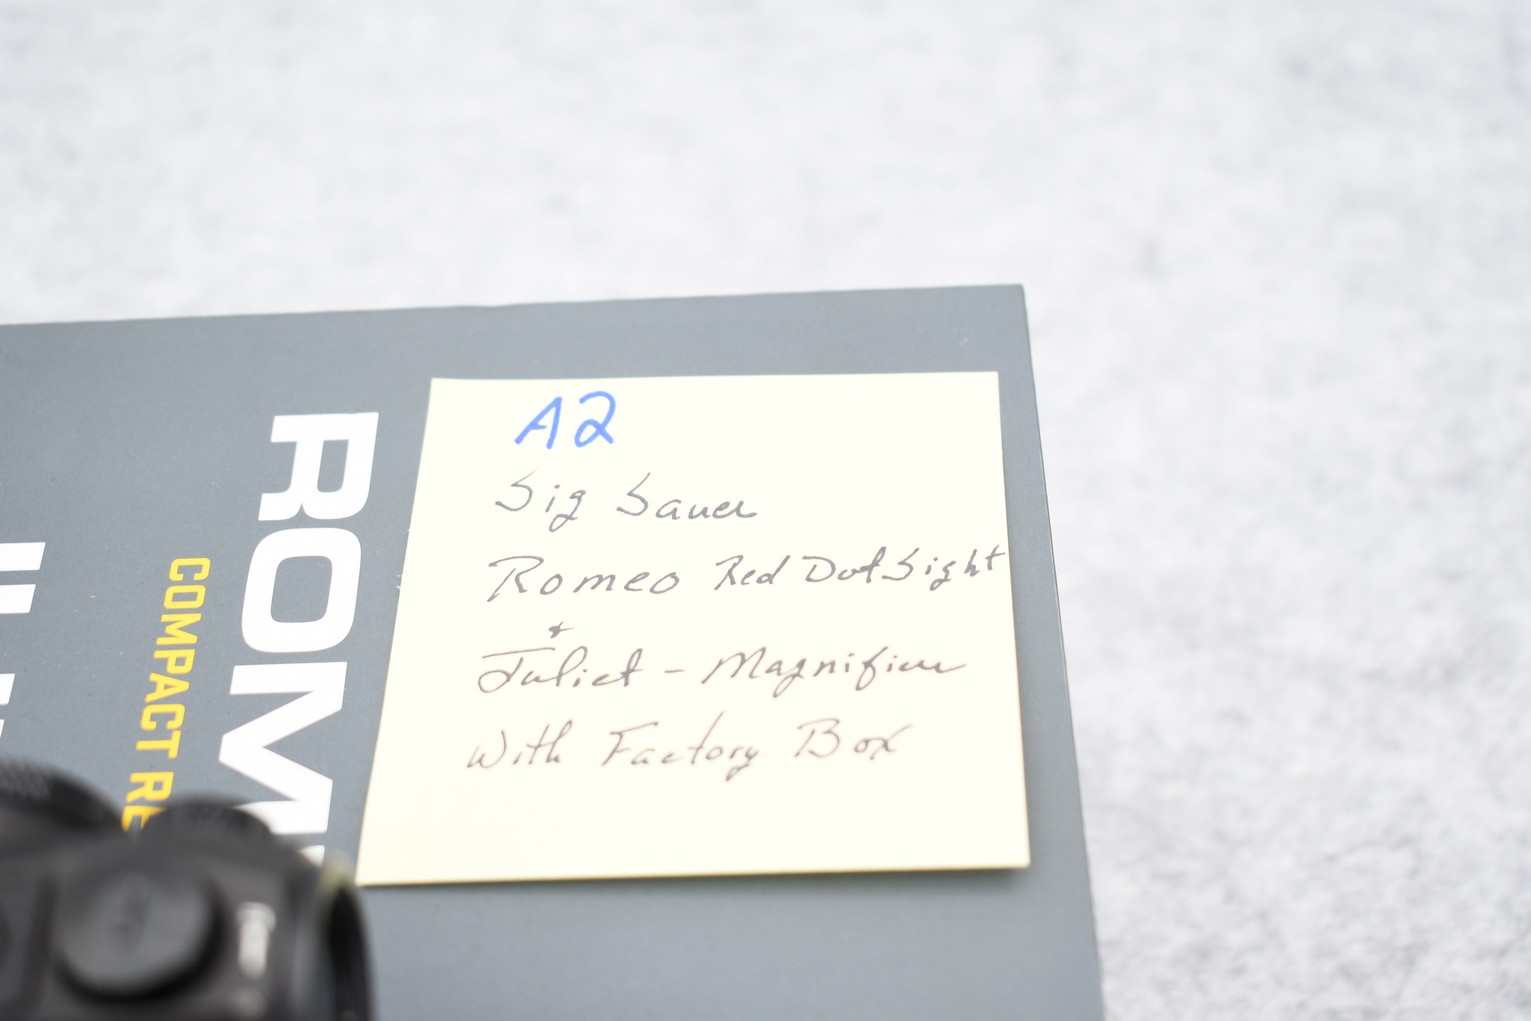 A2
Sig Sauer
Romeo Red Dot Sight
+
Juliet - Magnifier
With Factory Box
ROM
COMPACT RE